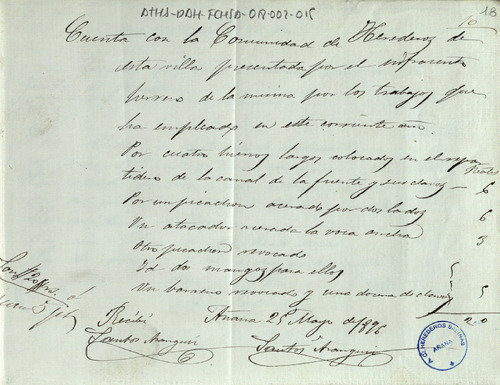 ATHA-DAH-FCHSA-OR-002-015
18
10
Cuenta con la Comunidad de Herederos de
esta villa presentada por el infrascrito
herrero de la misma por los trabajos que
ha empleado en este corriente año
Reales
Por cuatro hierros largos colocados en el repa
tidero de la canal de la fuente y sus clavos — 6
Por un picachon acerado por dos lados 6
Un atacador acerada la voca 3
Otro picachon revocado 5
Id dos mangos para ellos
Un barreno revocado y una docena de clavos 5
20
Añana 25 Mayo de 1896
Recibí
Santos Aranguiz
Santos Aranguiz
HEREDEROS SALINAS
AÑANA